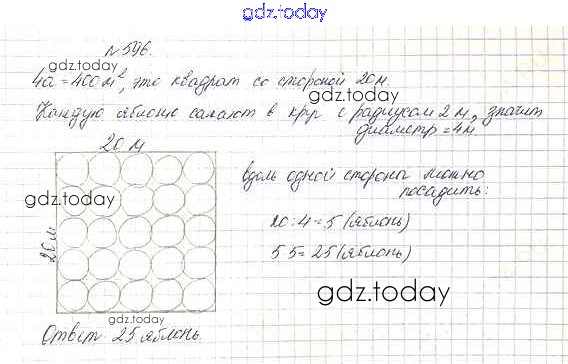 gdz.today
№ 546.
gdz.today
4а = 400 м², это квадрат со стороной 20 м.
gdz.today
Каждую яблоню сажают в круг с радиусом 2 м, значит
диаметр = 4 м.
20 м
вдоль одной стороны можно
посадить:
gdz.today
20 : 4 = 5 (яблонь)
20 м
5 5 = 25 (яблонь)
gdz.today
gdz.today
Ответ 25 яблонь.